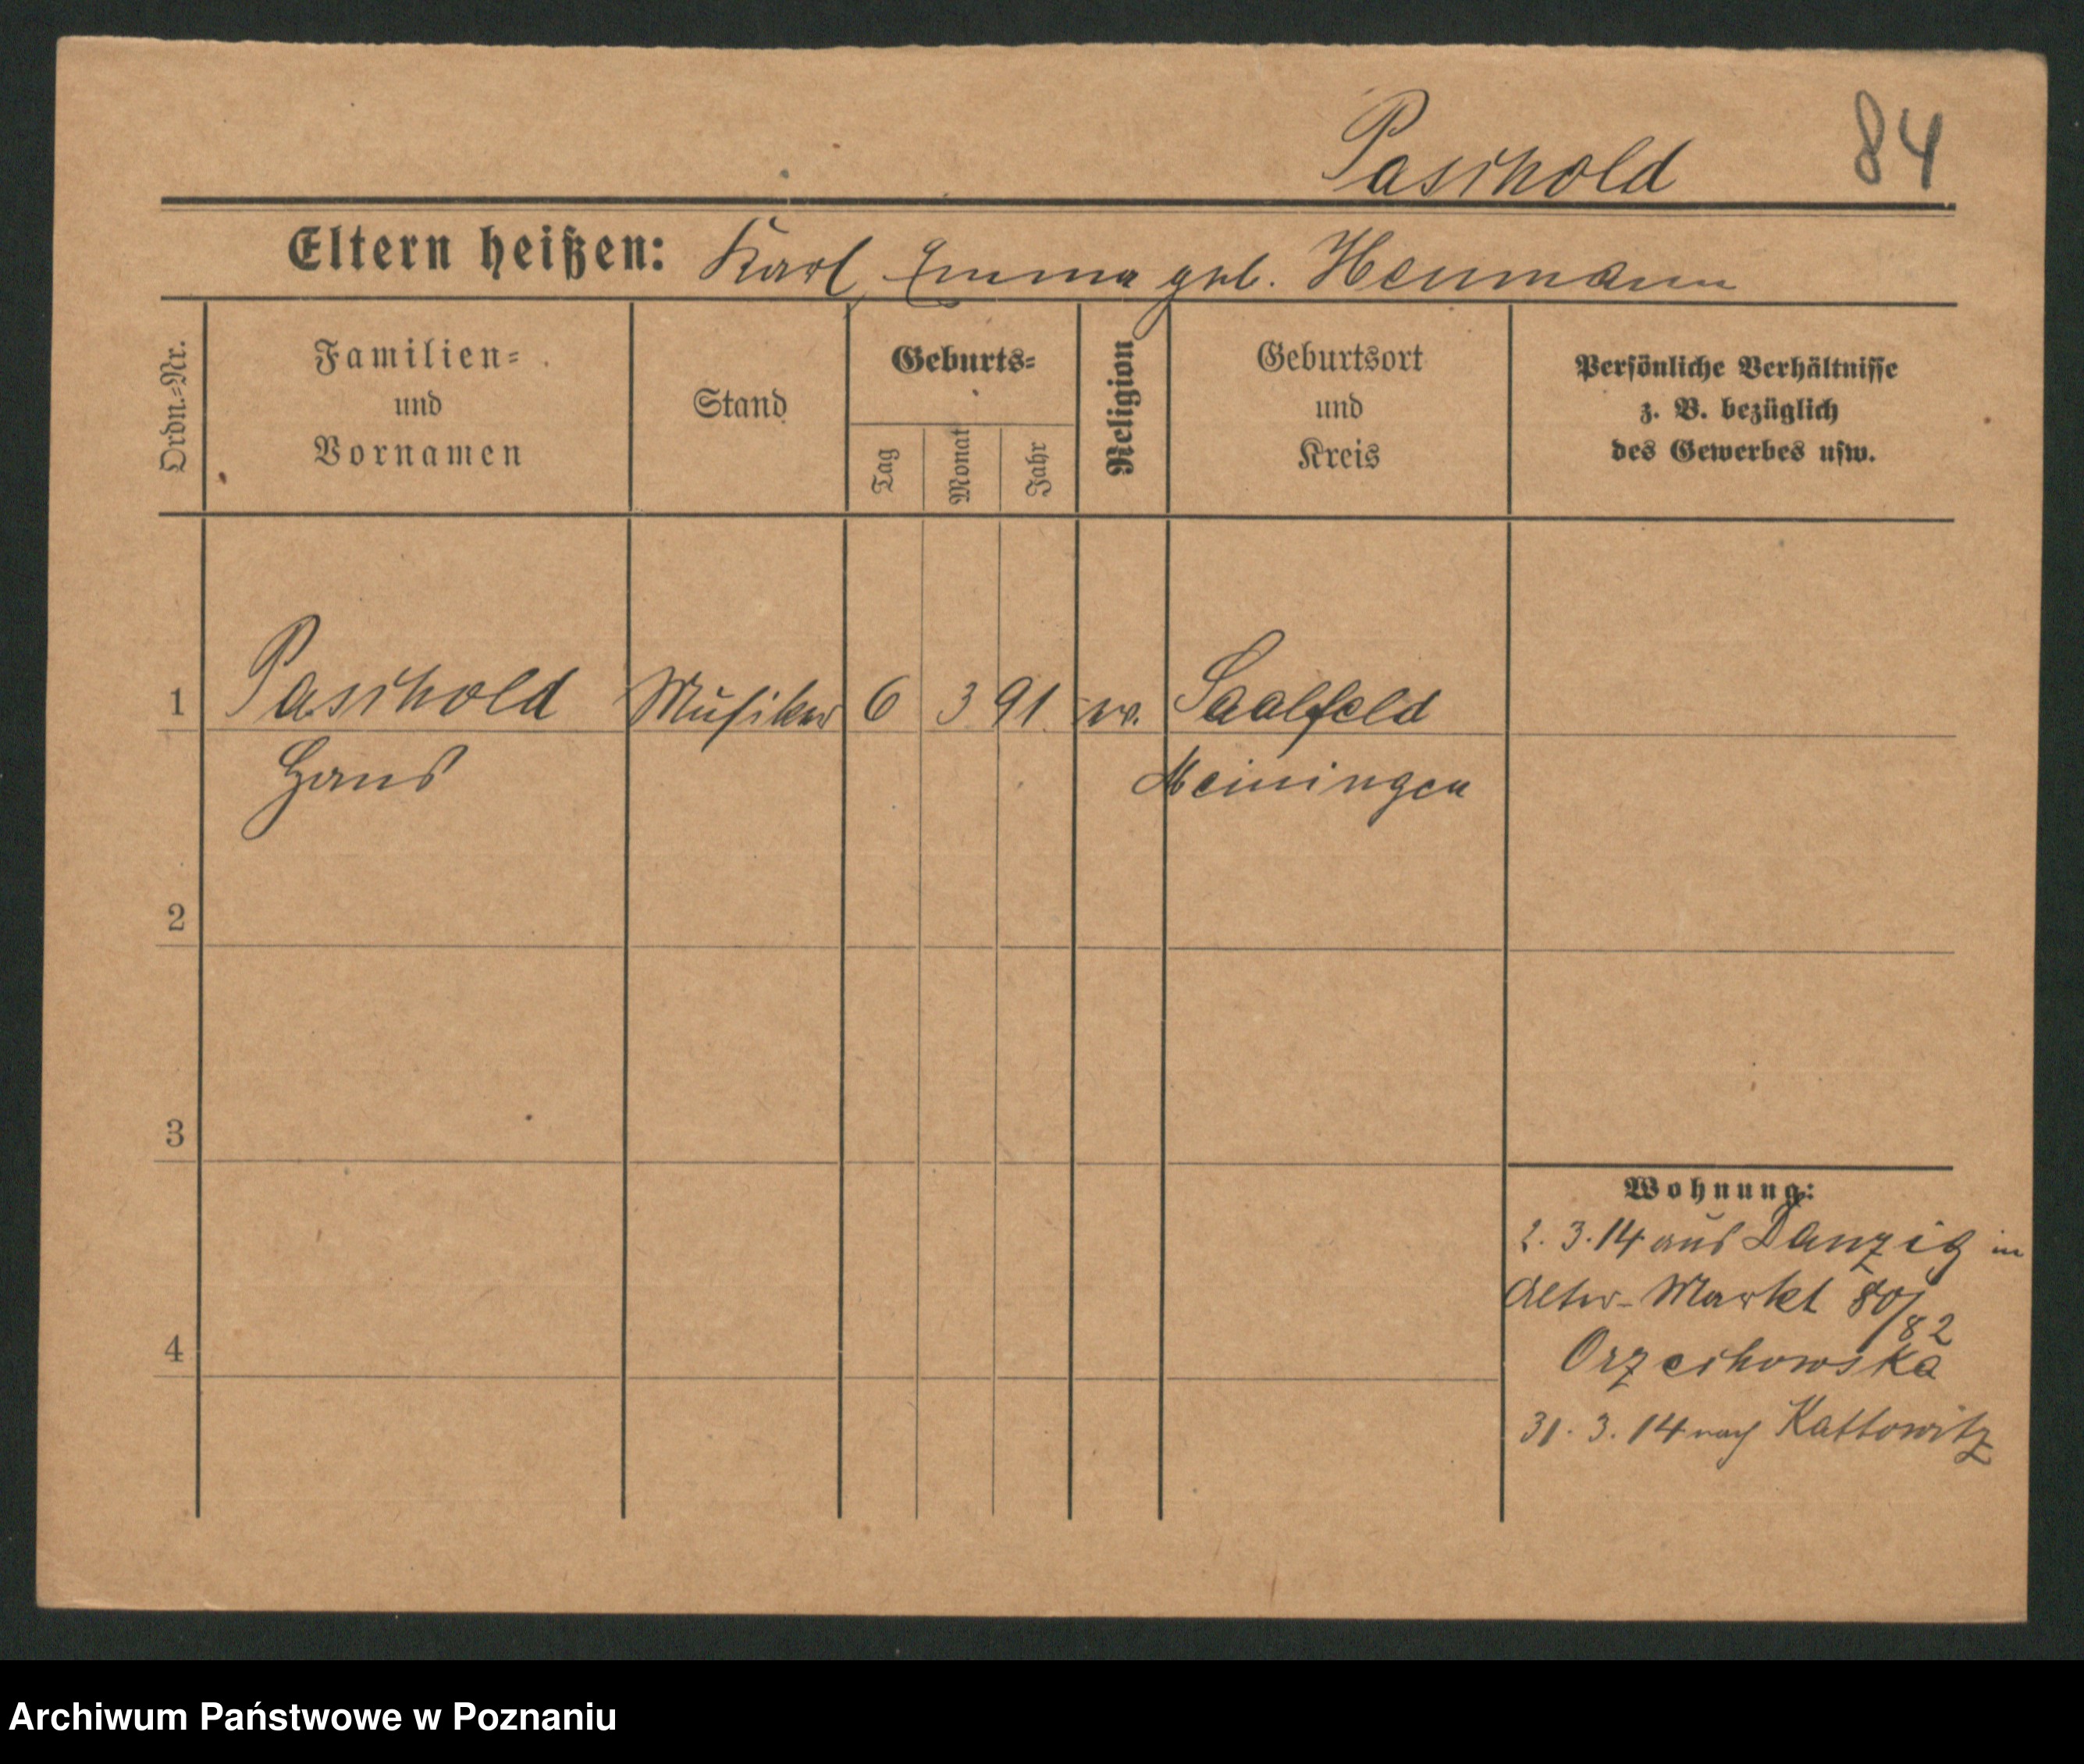 Paschold 84
Eltern heißen: Karl, Emma geb. Heumann
Ordn.-Nr.
Familien-
und
Vornamen
Stand
Geburts-
Tag
Monat
Jahr
Religion
Geburtsort
und
Kreis
Persönliche Verhältnisse
z. B. bezüglich
des Gewerbes usw.
1 Paschold Musiker 6 3 91 ev. Saalfeld
Hans Meiningen
2
3
4
Wohnung:
2. 3. 14 aus Danzig in
Alter-Markt 80/82
Orzechowska
31. 3. 14 nach Kattowitz
Archiwum Państwowe w Poznaniu